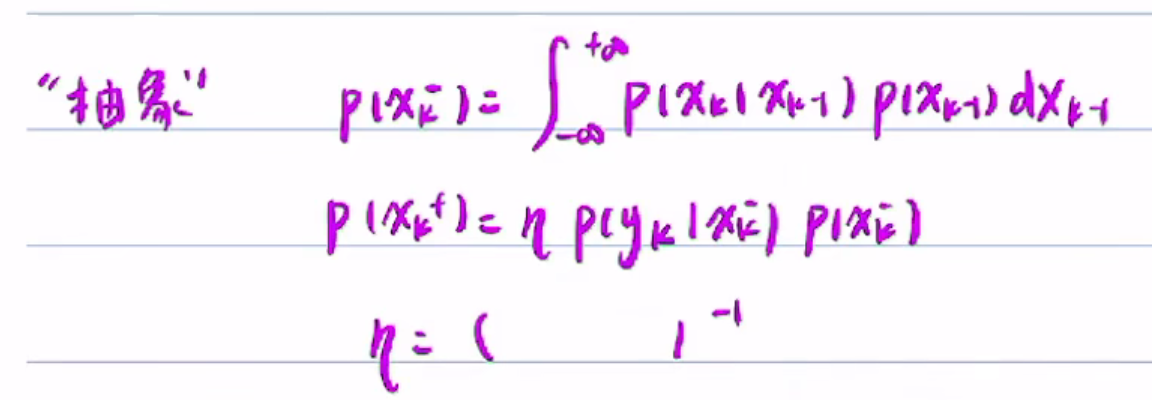 “抽象” p(x_k^-) = ∫_{-∞}^{+∞} p(x_k|x_{k-1}) p(x_{k-1}) dx_{k-1}
p(x_k^+) = η p(y_k|x_k^-) p(x_k^-)
η = ( )^{-1}